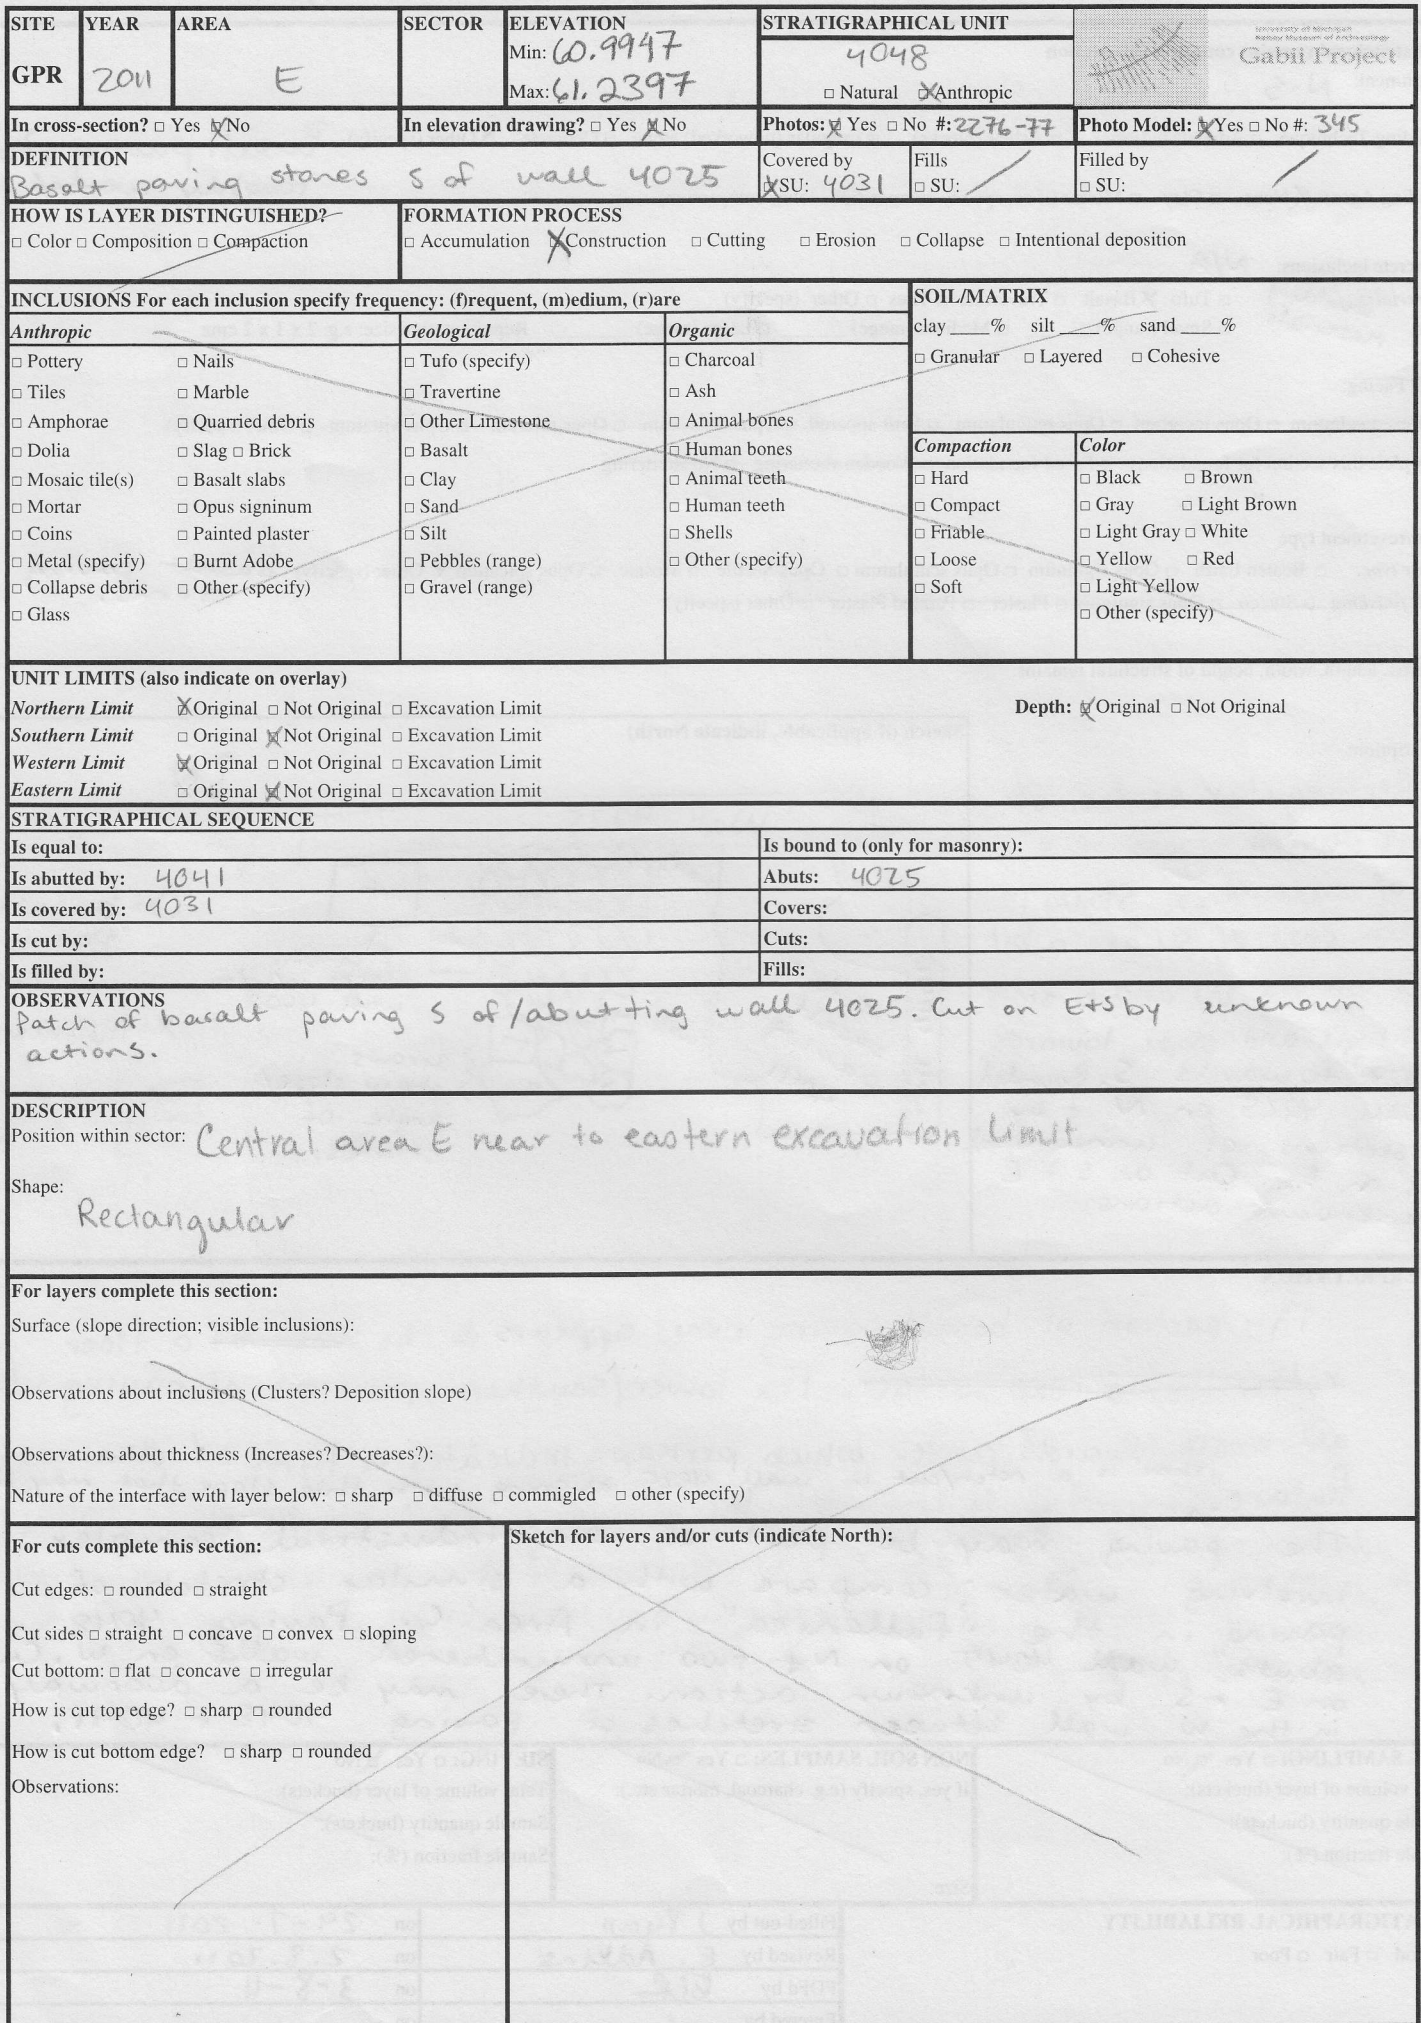 SITE YEAR AREA SECTOR ELEVATION STRATIGRAPHICAL UNIT
GPR 2011 E Min: 60.9947 4048
Max: 61.2397 □ Natural ☒ Anthropic
University of Michigan
Kelsey Museum of Archaeology
Gabii Project
In cross-section? □ Yes ☒ No In elevation drawing? □ Yes ☒ No Photos: ☒ Yes □ No #: 2276-77 Photo Model: ☒ Yes □ No #: 345
DEFINITION Covered by Fills Filled by
Basalt paving stones S of wall 4025 ☒ SU: 4031 □ SU: / □ SU: /
HOW IS LAYER DISTINGUISHED? FORMATION PROCESS
□ Color □ Composition □ Compaction □ Accumulation ☒ Construction □ Cutting □ Erosion □ Collapse □ Intentional deposition
INCLUSIONS For each inclusion specify frequency: (f)requent, (m)edium, (r)are
Anthropic
□ Pottery □ Nails
□ Tiles □ Marble
□ Amphorae □ Quarried debris
□ Dolia □ Slag □ Brick
□ Mosaic tile(s) □ Basalt slabs
□ Mortar □ Opus signinum
□ Coins □ Painted plaster
□ Metal (specify) □ Burnt Adobe
□ Collapse debris □ Other (specify)
□ Glass
Geological
□ Tufo (specify)
□ Travertine
□ Other Limestone
□ Basalt
□ Clay
□ Sand
□ Silt
□ Pebbles (range)
□ Gravel (range)
Organic
□ Charcoal
□ Ash
□ Animal bones
□ Human bones
□ Animal teeth
□ Human teeth
□ Shells
□ Other (specify)
SOIL/MATRIX
clay ____% silt ____% sand ____%
□ Granular □ Layered □ Cohesive
Compaction
□ Hard
□ Compact
□ Friable
□ Loose
□ Soft
Color
□ Black □ Brown
□ Gray □ Light Brown
□ Light Gray □ White
□ Yellow □ Red
□ Light Yellow
□ Other (specify)
UNIT LIMITS (also indicate on overlay)
Northern Limit ☒ Original □ Not Original □ Excavation Limit Depth: ☒ Original □ Not Original
Southern Limit □ Original ☒ Not Original □ Excavation Limit
Western Limit ☒ Original □ Not Original □ Excavation Limit
Eastern Limit □ Original ☒ Not Original □ Excavation Limit
STRATIGRAPHICAL SEQUENCE
Is equal to: Is bound to (only for masonry):
Is abutted by: 4041 Abuts: 4025
Is covered by: 4031 Covers:
Is cut by: Cuts:
Is filled by: Fills:
OBSERVATIONS
Patch of basalt paving S of/abutting wall 4025. Cut on E+S by unknown
actions.
DESCRIPTION
Position within sector: Central area E near to eastern excavation limit
Shape:
Rectangular
For layers complete this section:
Surface (slope direction; visible inclusions):
Observations about inclusions (Clusters? Deposition slope)
Observations about thickness (Increases? Decreases?):
Nature of the interface with layer below: □ sharp □ diffuse □ commigled □ other (specify)
For cuts complete this section:
Cut edges: □ rounded □ straight
Cut sides □ straight □ concave □ convex □ sloping
Cut bottom: □ flat □ concave □ irregular
How is cut top edge? □ sharp □ rounded
How is cut bottom edge? □ sharp □ rounded
Observations:
Sketch for layers and/or cuts (indicate North):